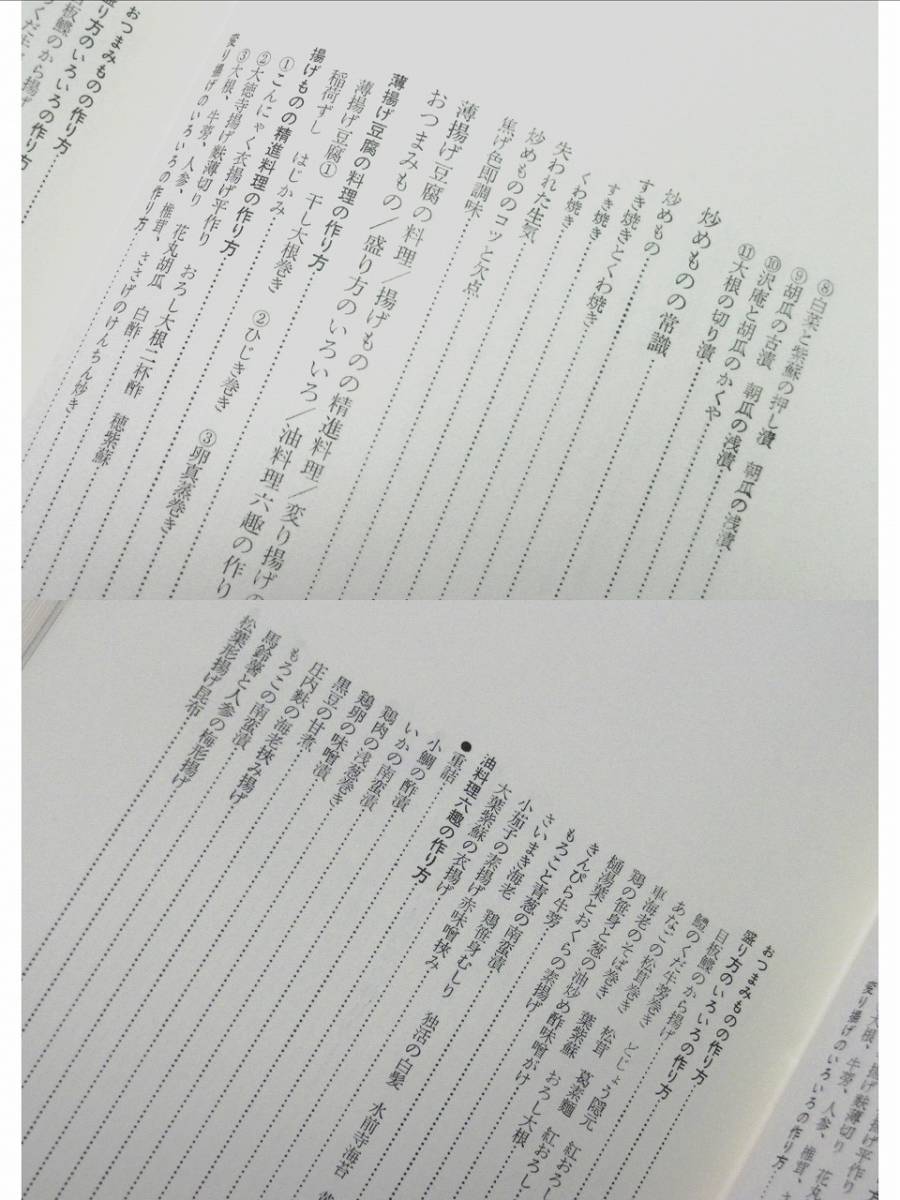 ⑧白菜と紫蘇の押し漬 朝瓜の浅漬
⑨胡瓜の古漬 朝瓜の浅漬
⑩沢庵と胡瓜のかくや
⑪大根の切り漬
炒めものの常識
炒めもの
すき焼きとくわ焼き
すき焼き
くわ焼き
失われた生気
炒めもののコツと欠点
焦げ色即調味
薄揚げ豆腐の料理/揚げものの精進料理/変り揚げの
おつまみもの/盛り方のいろいろ/油料理六趣の作り
薄揚げ豆腐の料理の作り方
薄揚げ豆腐① 干し大根巻き ②ひじき巻き ③卵真蒸巻き
稲荷ずし はじかみ
揚げものの精進料理の作り方
①こんにゃく衣揚げ平作り おろし大根二杯酢 穂紫蘇
②大徳寺揚げ麩薄切り 花丸胡瓜 白酢
③大根、牛蒡、人参、椎茸、ささげのけんちん炒き
変り揚げのいろいろの作り方
おつまみものの作り方
盛り方のいろいろの作り方
目板鰈のから揚げ
おつまみものの作り方
盛り方のいろいろの作り方
目板鰈のから揚げ
鱧のくだ牛蒡巻き どじょう隠元 紅おろし
あなごの松茸巻き 松茸 葛素麺 紅おろし
車海老のそば巻き 葉紫蘇 おろし大根
鶏の笹身と葱の油炒め酢味噌がけ
樋湯葉とおくらの素揚げ
きんぴら牛蒡
もろこと青葱の南蛮漬
さいまき海老 鶏笹身むしり 独活の白髪 水前寺海苔
小茄子の素揚げ赤味噌挟み
大葉紫蘇の衣揚げ
油料理六趣の作り方
●重詰
小鯛の酢漬
いかの南蛮漬
鶏肉の浅葱巻き
鶏卵の味噌漬
黒豆の甘煮
庄内麩の海老挟み揚げ
もろこの南蛮漬
馬鈴薯と人参の梅形揚げ
松葉形揚げ昆布
揚げ平作り
揚げ麩薄切り
大根、牛蒡、人参、椎茸、
変り揚げのいろいろの作り方